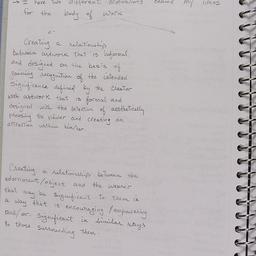 → I have two different motivations behind my ideas
for the body of work
Creating a relationship
between artwork that is informal
and designed on the basis of
gaining recognition of the intended
significance defined by the creator
with artwork that is formal and
designed with the intention of aesthetically
pleasing the viewer and creating an
attraction within him/her
Creating a relationship between the
adornment/object and the wearer
that may be significant to them in
a way that is encouraging/empowering
and/or significant in similar ways
to those surrounding them